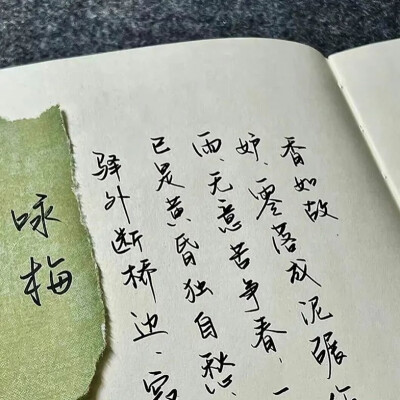 咏梅
驿外断桥边、
已是黄昏独自愁
雨、无意苦争春、一
妒、零落成泥碾
香如故